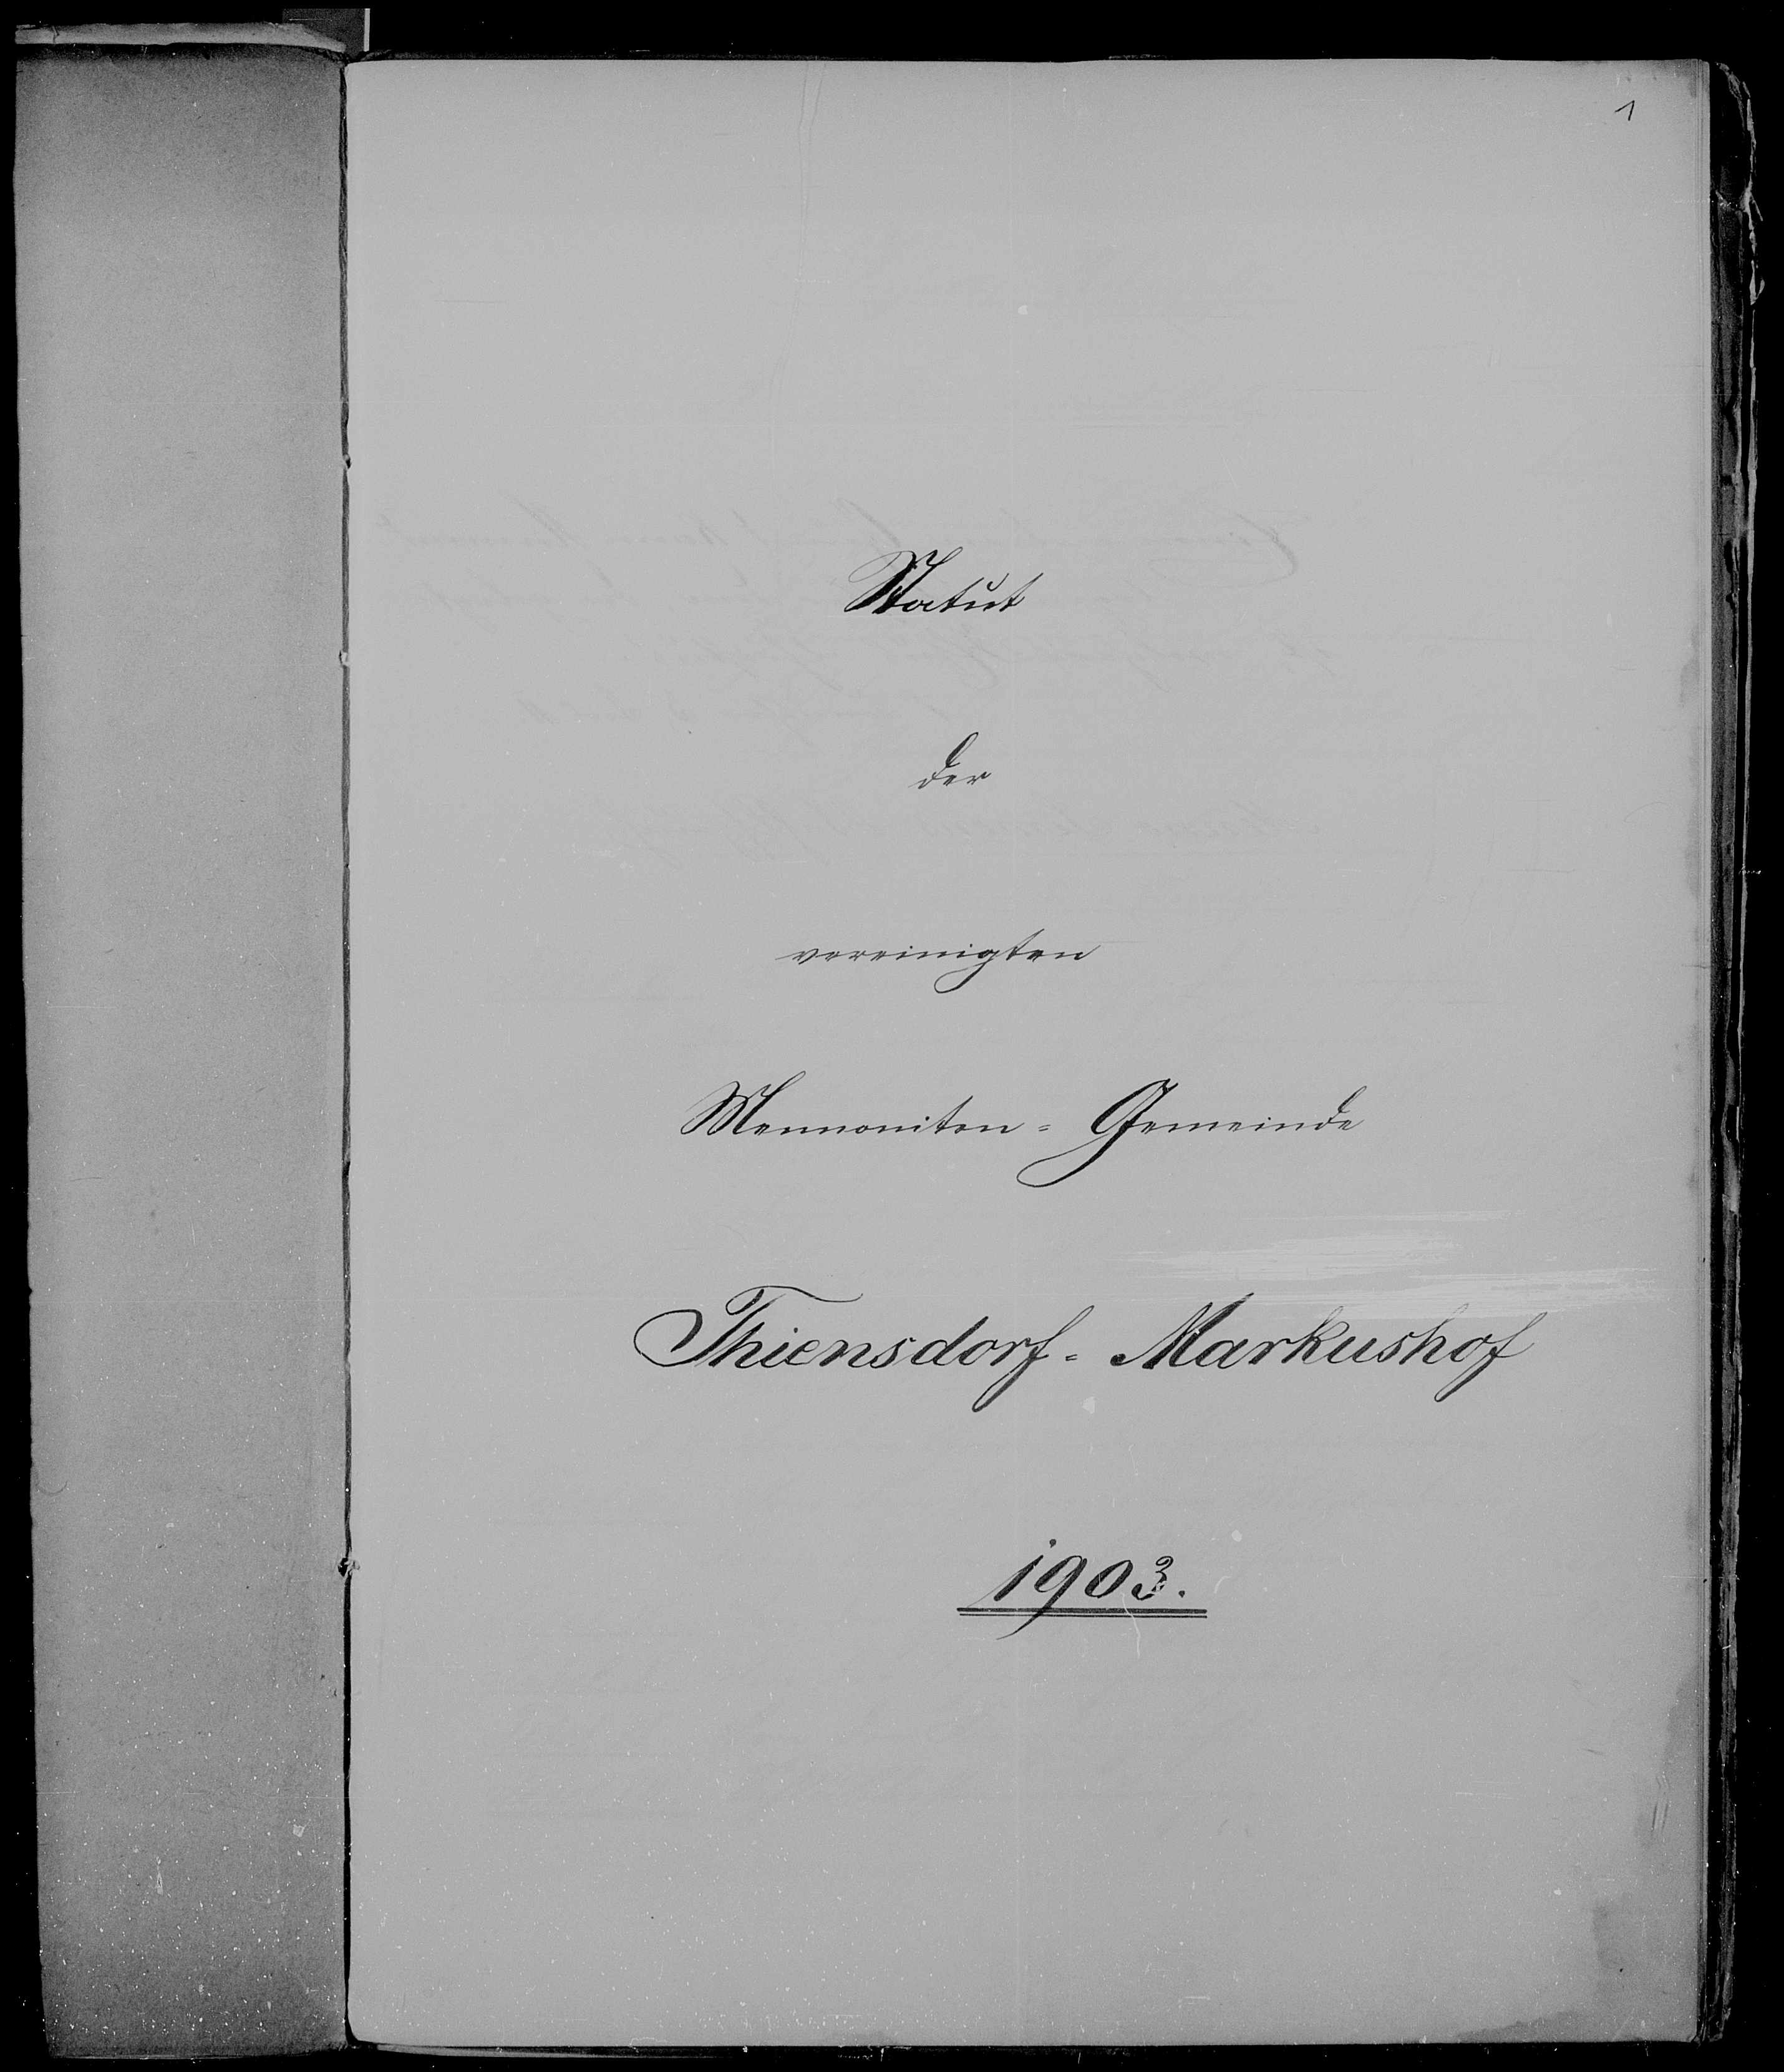 1
Statut
der
vereinigten
Mennoniten = Gemeinde
Thiensdorf = Markushof
1903.